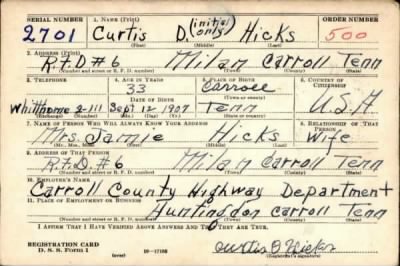 SERIAL NUMBER 1. NAME (Print) ORDER NUMBER
2701 Curtis D. (initial only) Hicks 500
(First) (Middle) (Last)
2. ADDRESS (Print)
R.F.D #6 Milan Carroll Tenn
(Number and street or R. F. D. number) (Town) (County) (State)
3. TELEPHONE 4. AGE IN YEARS 5. PLACE OF BIRTH 6. COUNTRY OF CITIZENSHIP
33 Carroll
DATE OF BIRTH (Town or county)
Whitthorne 2-111 Sept. 12 1907 Tenn U.S.A
(Exchange) (Number) (Mo.) (Day) (Yr.) (State or country)
7. NAME OF PERSON WHO WILL ALWAYS KNOW YOUR ADDRESS 8. RELATIONSHIP OF THAT PERSON
Mrs. Jamie Hicks Wife
(Mr., Mrs., Miss) (First) (Middle) (Last)
9. ADDRESS OF THAT PERSON
R.F.D. #6 Milan Carroll Tenn
(Number and street or R. F. D. number) (Town) (County) (State)
10. EMPLOYER'S NAME
Carroll County Highway Department
11. PLACE OF EMPLOYMENT OR BUSINESS
Huntingdon Carroll Tenn
(Number and street or R. F. D. number) (Town) (County) (State)
I AFFIRM THAT I HAVE VERIFIED ABOVE ANSWERS AND THAT THEY ARE TRUE.
REGISTRATION CARD
D. S. S. Form 1 (over) 16—17105 Curtis D Hicks
(Registrant's signature)